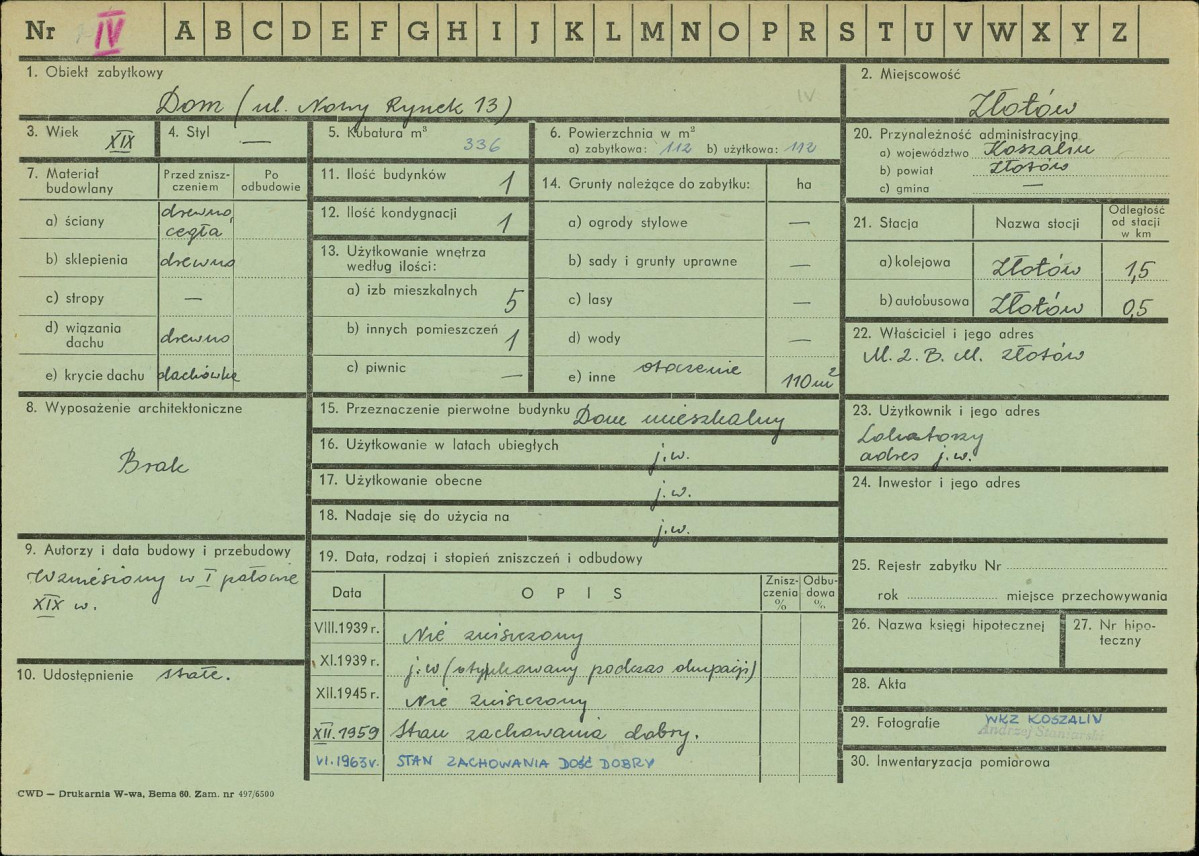 Nr IV A B C D E F G H I J K L M N O P R S T U V W X Y Z
1. Obiekt zabytkowy
Dom (ul. Nowy Rynek 13)
IV
2. Miejscowość
Złotów
3. Wiek XIX
4. Styl —
5. Kubatura m³ 336
6. Powierzchnia w m²
a) zabytkowa: 112 b) użytkowa: 112
20. Przynależność administracyjna
a) województwo Koszalin
b) powiat Złotów
c) gmina —
7. Materiał budowlany
Przed zniszczeniem
Po odbudowie
a) ściany drewno, cegła
b) sklepienia drewno
c) stropy —
d) wiązania dachu drewno
e) krycie dachu dachówka
11. Ilość budynków 1
12. Ilość kondygnacji 1
13. Użytkowanie wnętrza według ilości:
a) izb mieszkalnych 5
b) innych pomieszczeń 1
c) piwnic —
14. Grunty należące do zabytku: ha
a) ogrody stylowe —
b) sady i grunty uprawne —
c) lasy —
d) wody —
e) inne otoczenie 110 m²
21. Stacja Nazwa stacji Odległość od stacji w km
a) kolejowa Złotów 1,5
b) autobusowa Złotów 0,5
22. Właściciel i jego adres
M.Z.B.M. Złotów
8. Wyposażenie architektoniczne
Brak
15. Przeznaczenie pierwotne budynku Dom mieszkalny
16. Użytkowanie w latach ubiegłych j.w.
17. Użytkowanie obecne j.w.
18. Nadaje się do użycia na j.w.
23. Użytkownik i jego adres
Lokatorzy
adres j.w.
24. Inwestor i jego adres
9. Autorzy i data budowy i przebudowy
Wzniesiony w I połowie
XIX w.
10. Udostępnienie stałe.
19. Data, rodzaj i stopień zniszczeń i odbudowy
Data OPIS Zniszczenia % Odbudowa %
VIII.1939 r. Nie zniszczony
XI.1939 r. j.w (użytkowany podczas okupacji)
XII.1945 r. Nie zniszczony
XII.1959 Stan zachowania dobry.
VI.1963 r. STAN ZACHOWANIA DOŚĆ DOBRY
25. Rejestr zabytku Nr
rok miejsce przechowywania
26. Nazwa księgi hipotecznej
27. Nr hipoteczny
28. Akta
29. Fotografie WKZ KOSZALIN
Andrzej Staniarski
30. Inwentaryzacja pomiarowa
CWD — Drukarnia W-wa, Bema 60. Zam. nr 497/6500